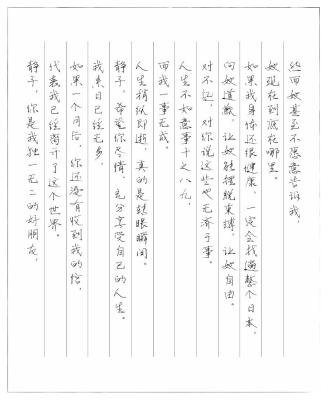 然而奴甚至不愿意告诉我，
奴现在到底在哪里。
如果我身体还很健康，一定会找遍整个日本，
向奴道歉，让奴能摆脱束缚，让奴自由。
对不起，对你说这些也无济于事。
人生不如意事十之八九，
而我一事无成。
人生稍纵即逝，真的是转眼瞬间。
静子，希望你尽情、充分享受自己的人生。
我来日已经无多，
如果一个月后，你还没有收到我的信，
代表我已经离开了这个世界。
静子，你是我独一无二的好朋友，